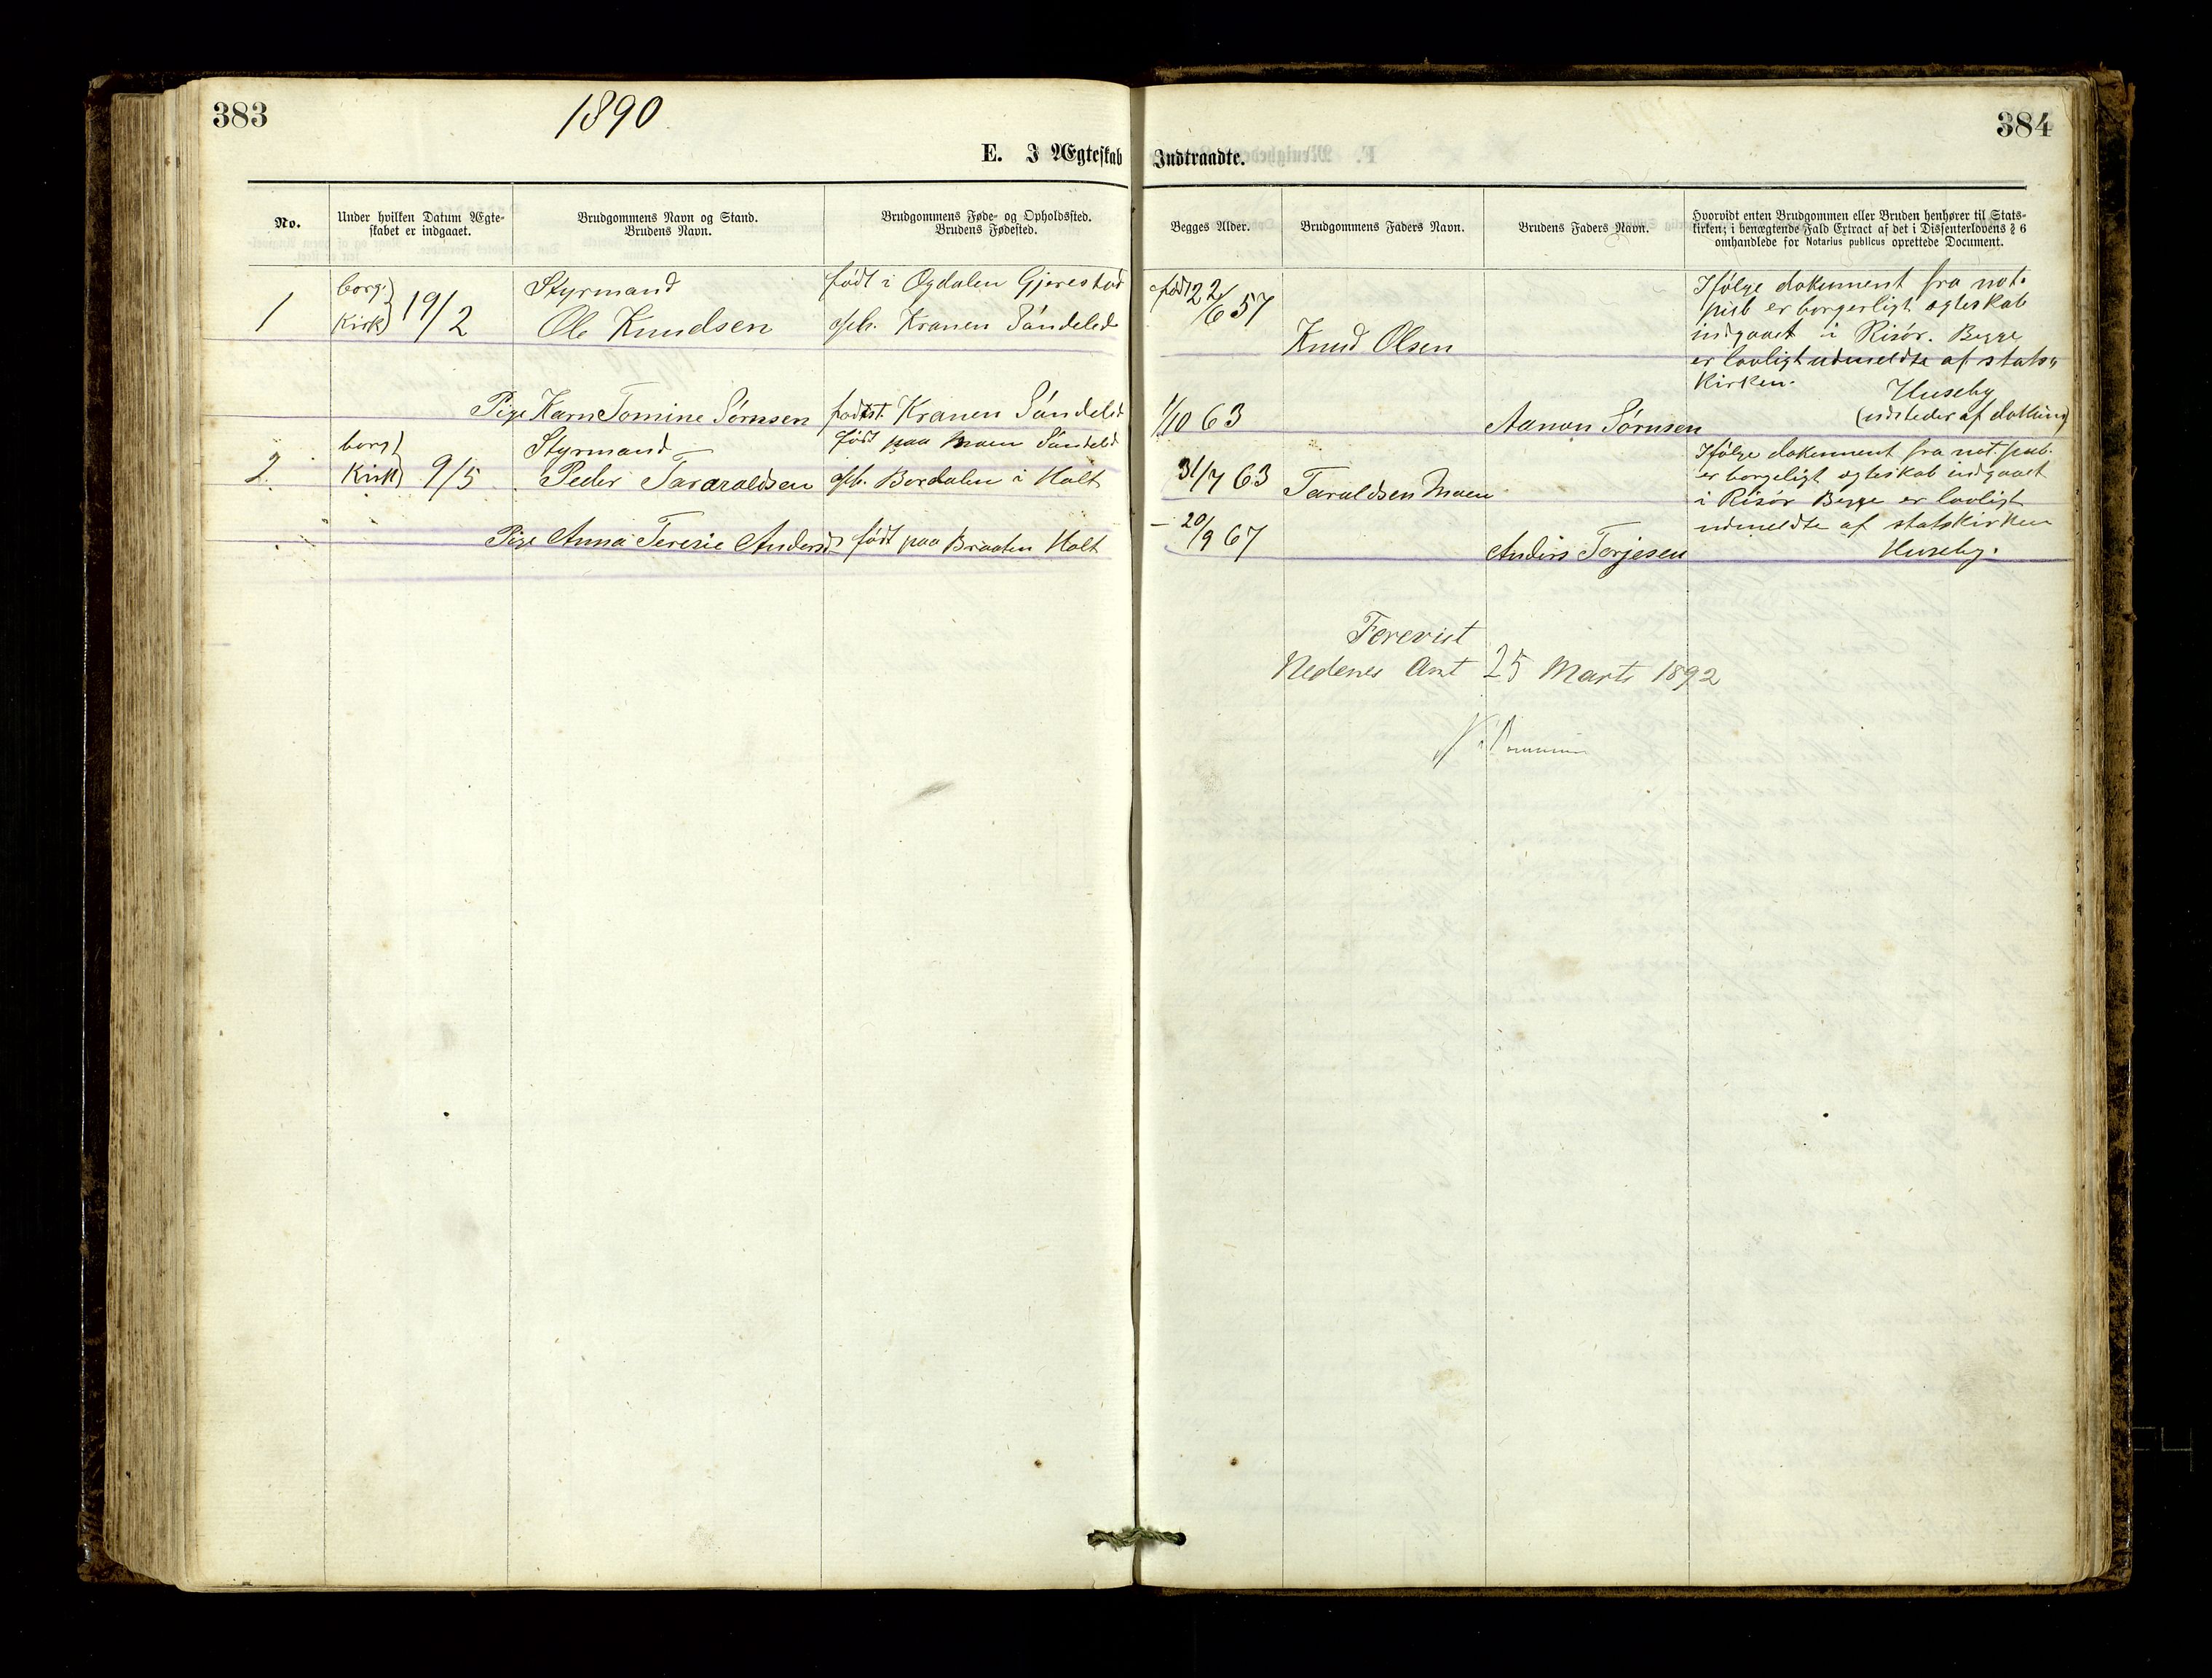 383
1890
384
E. I Ægteskab Indtraadte.
No.
Under hvilken Datum Ægte-
skabet er indgaaet.
Brudgommens Navn og Stand.
Brudens Navn.
Brudgommens Føde- og Opholdssted.
Brudens Fødested.
Begges Alder.
Brudgommens Faders Navn.
Brudens Faders Navn.
Hvorvidt enten Brudgommen eller Bruden henhører til Stats-
kirken; i benægtende Fald Extract af det i Dissenterlovens § 6
omhandlede for Notarius publicus oprettede Document.
1
borg.
Kirk } 19/2
Styrmand
Ole Knudsen
født i Ogdalen Gjerestad
opth. Kranen Søndeled
født 22/6 57
Knud Olsen
Ifølge dokument fra not.
pub er borgerligt egteskab
indgaaet i Risør. Begge
er lovligt udmeldte af stats„
kirken.
Huseby
(udsteder af dokum)
Pige Karn Tomine Sørnsen
fødest. Kranen Søndeled
1/10 63
Aanon Sørnsen
2.
borgt
Kirk } 9/5
Styrmand
Peder Tararaldsen
født paa Moen Søndeled
opth. Bordalen i Holt
31/7 63
Taraldsen Moen
Ifølge dokument fra not. pub.
er borgeligt egteskab indgaaet
i Risør Begge er lovligt
udmeldte af statskirken
Huseby.
Pige Anna Teresie Andersd
født paa Braaten Holt
— 20/9 67
Anders Torjesen
Forevist
Nedenes Amt 25 Marts 1892